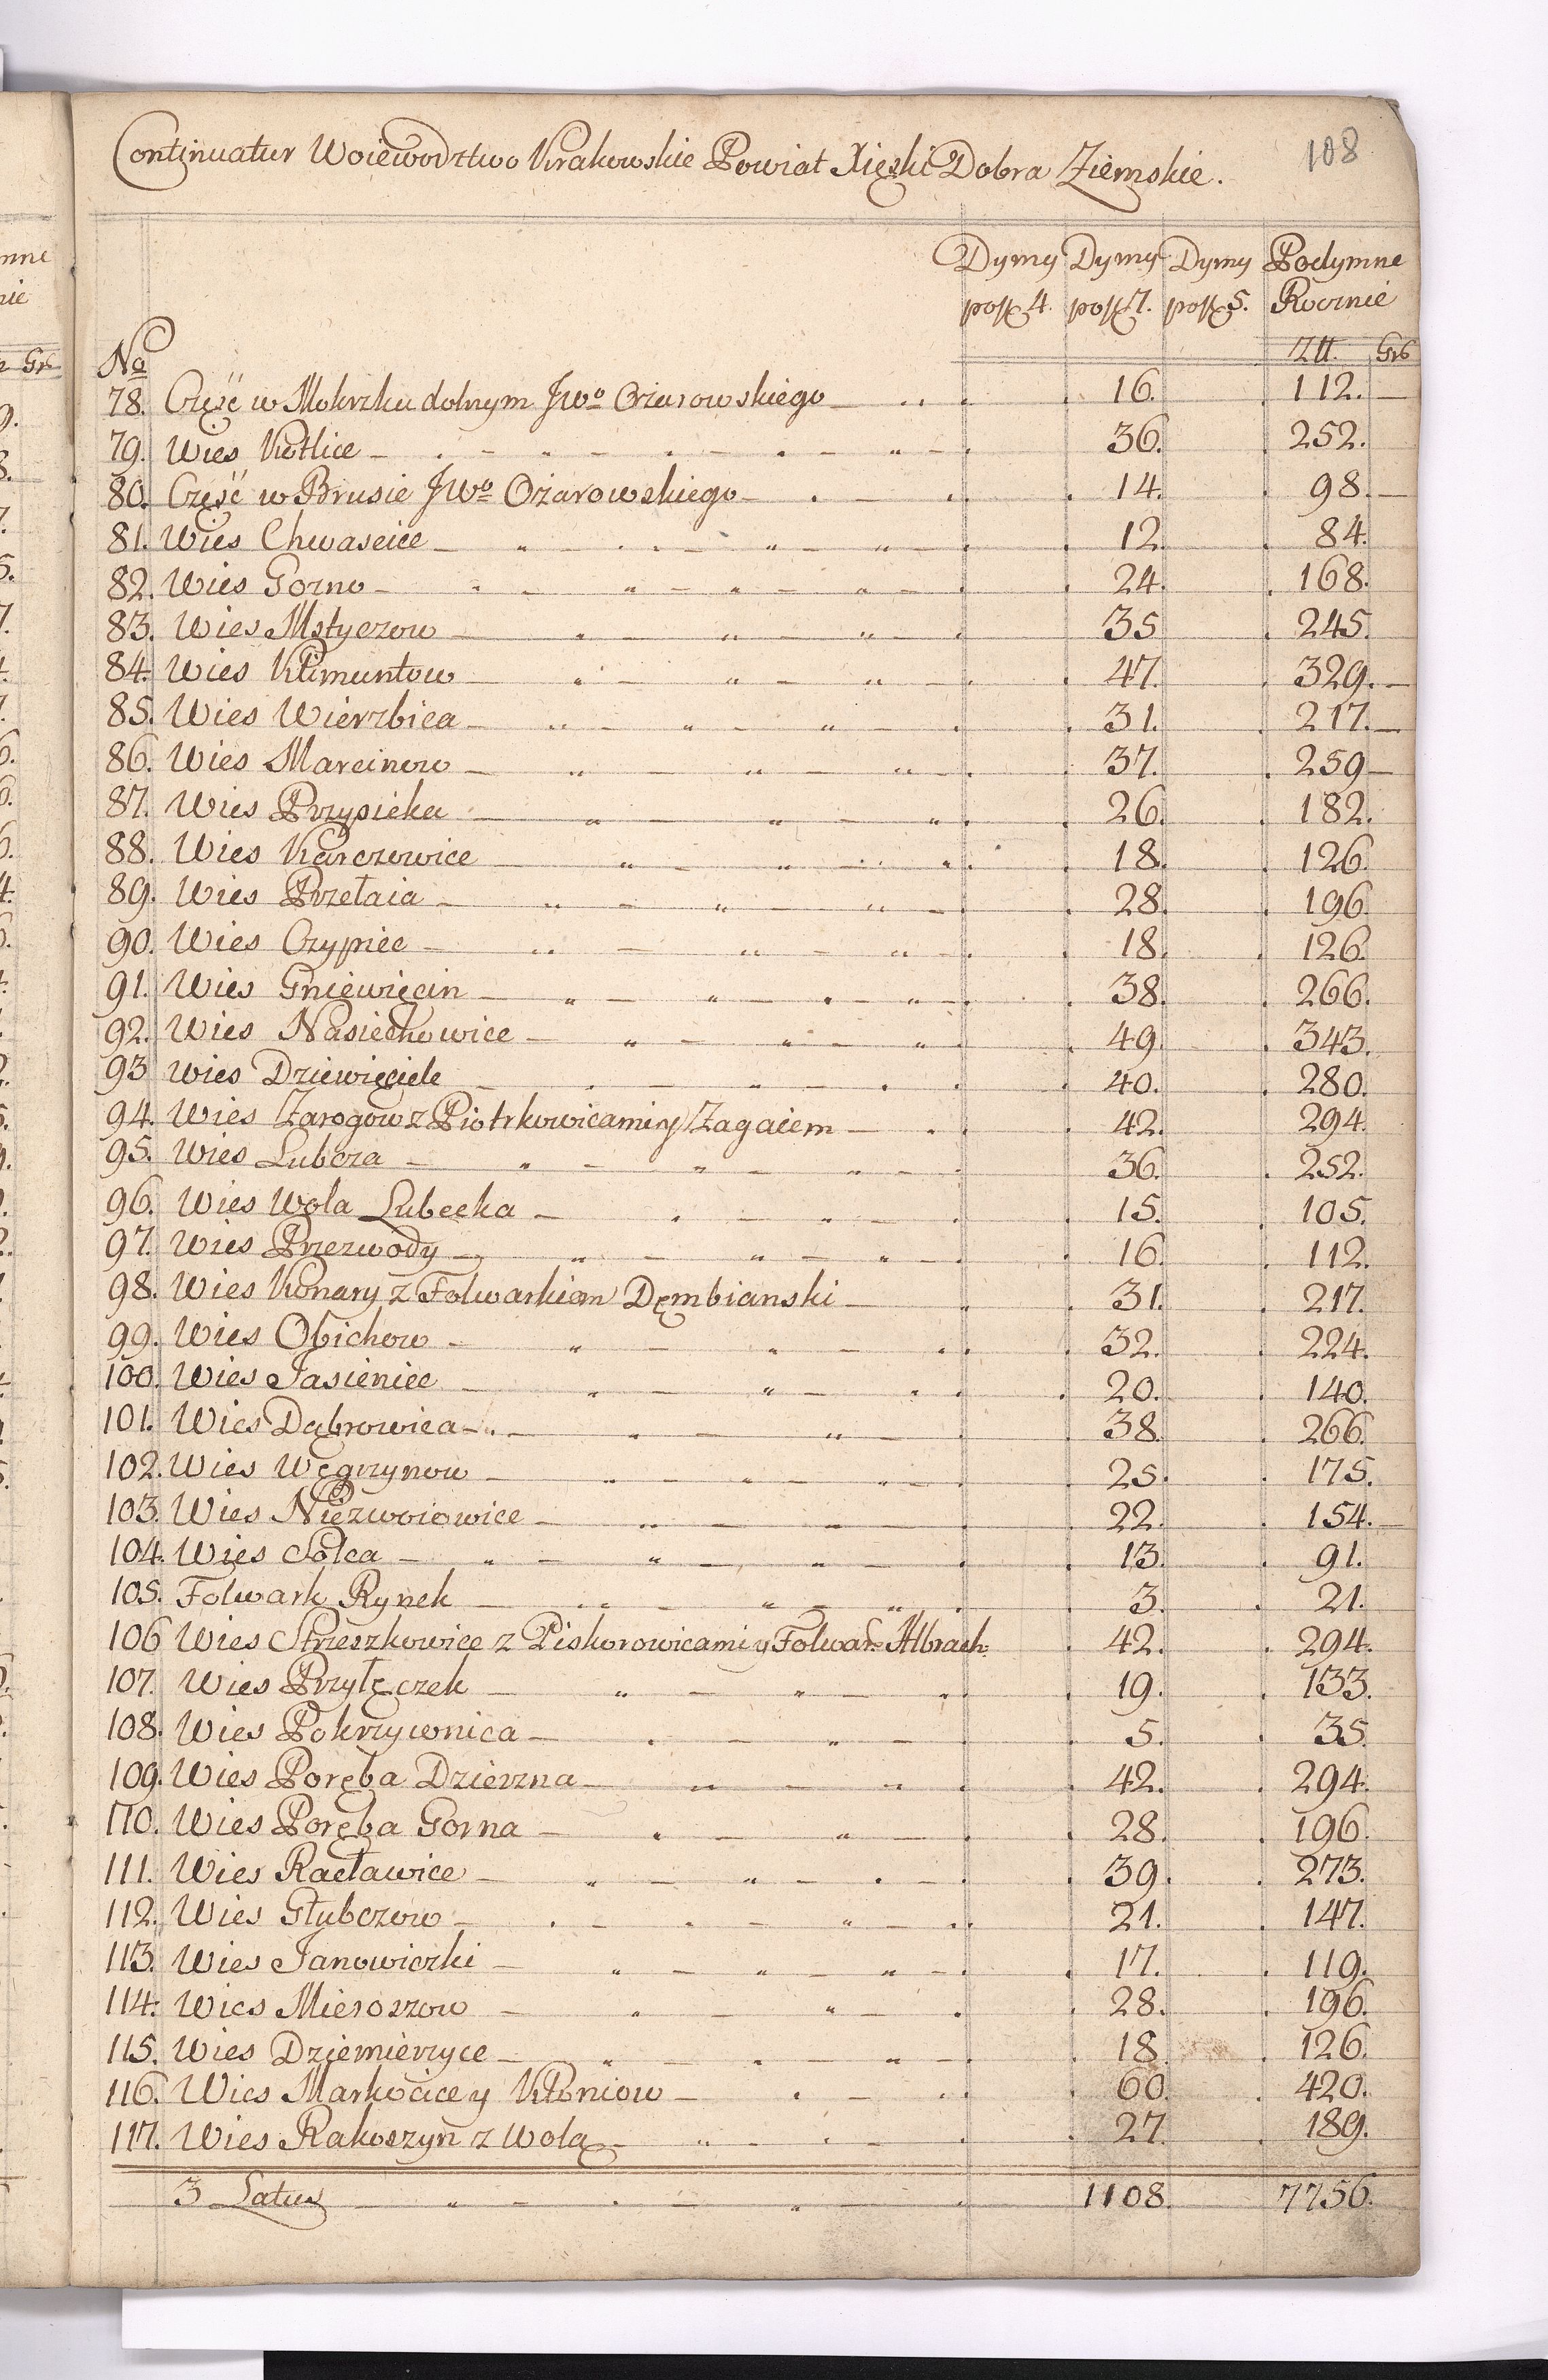 108
Continuatur Woiewodztwo Krakowskie Powiat Xięski Dobra Ziemskie.
Dymy Dymy Dymy Podymne
po zł 4. po zł 7. po zł 5. Rocznie
Złł. Gr
No
78. Część w Mokrzku dolnym Jwo Ożarowskiego 16. 112. —
79. Wies Kotlice 36. 252.
80. Część w Brusie JWo Ożarowskiego 14. 98. —
81. Wies Chwascice 12. 84.
82. Wies Gozno 24. 168.
83. Wies Mstyczow 35 245.
84. Wies Klimuntow 47. 329. —
85. Wies Wierzbica 31. 217. —
86. Wies Marcinow 37. 259 —
87. Wies Przysieka 26. 182.
88. Wies Karczowice 18. 126.
89. Wies Przełaia 28. 196.
90. Wies Czypiec 18. 126.
91. Wies Gniewięcin 38. 266.
92. Wies Nasiechowice 49. 343.
93 Wies Dziewięciele 40. 280.
94. Wies Zarogow z Piotrkowicami y Zagaiem 42. 294.
95. Wies Lubcza 36. 252.
96. Wies Wola Lubecka 15. 105.
97. Wies Przezwody 16. 112.
98. Wies Konary z Folwarkiem Dęmbianski 31. 217.
99. Wies Obichow 32. 224.
100. Wies Jasieniec 20. 140.
101. Wies Dąbrowica 38. 266.
102. Wies Węgrzynow 25. 175.
103. Wies Niezwoiowice 22. 154. —
104. Wies Solca 13. 91.
105. Folwark Rynek 3. 21.
106 Wies Strzeszkowice z Piskorowicami y Folwar: Albrach: 42. 294.
107. Wies Przyłęczek 19. 133.
108. Wies Pokrzywnica 5. 35.
109. Wies Poręba Dzierzna 42. 294.
110. Wies Poręba Gorna 28. 196.
111. Wies Racławice 39. 273.
112. Wies Głubczow 21. 147.
113. Wies Janowiczki 17. 119.
114. Wies Mieroszow 28. 196.
115. Wies Dziemierzyce 18. 126.
116. Wies Markocice y Kłoniow 60. 420.
117. Wies Rakoszyn z Wolą 27. 189.
3 Latus 1108. 7756.